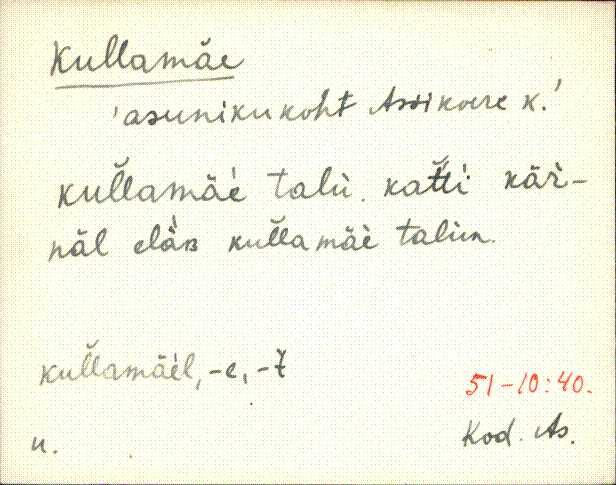 Kullamäe
'asunikukoht Assikvere k.'
kul̆lamäè talù. kat̆ti kär̀-
näl elä̀ʙ kul̆lamäè talùn.
kul̆lamäèl, -e, -ʟ̆
51-10:40.
u.
Kod. As.